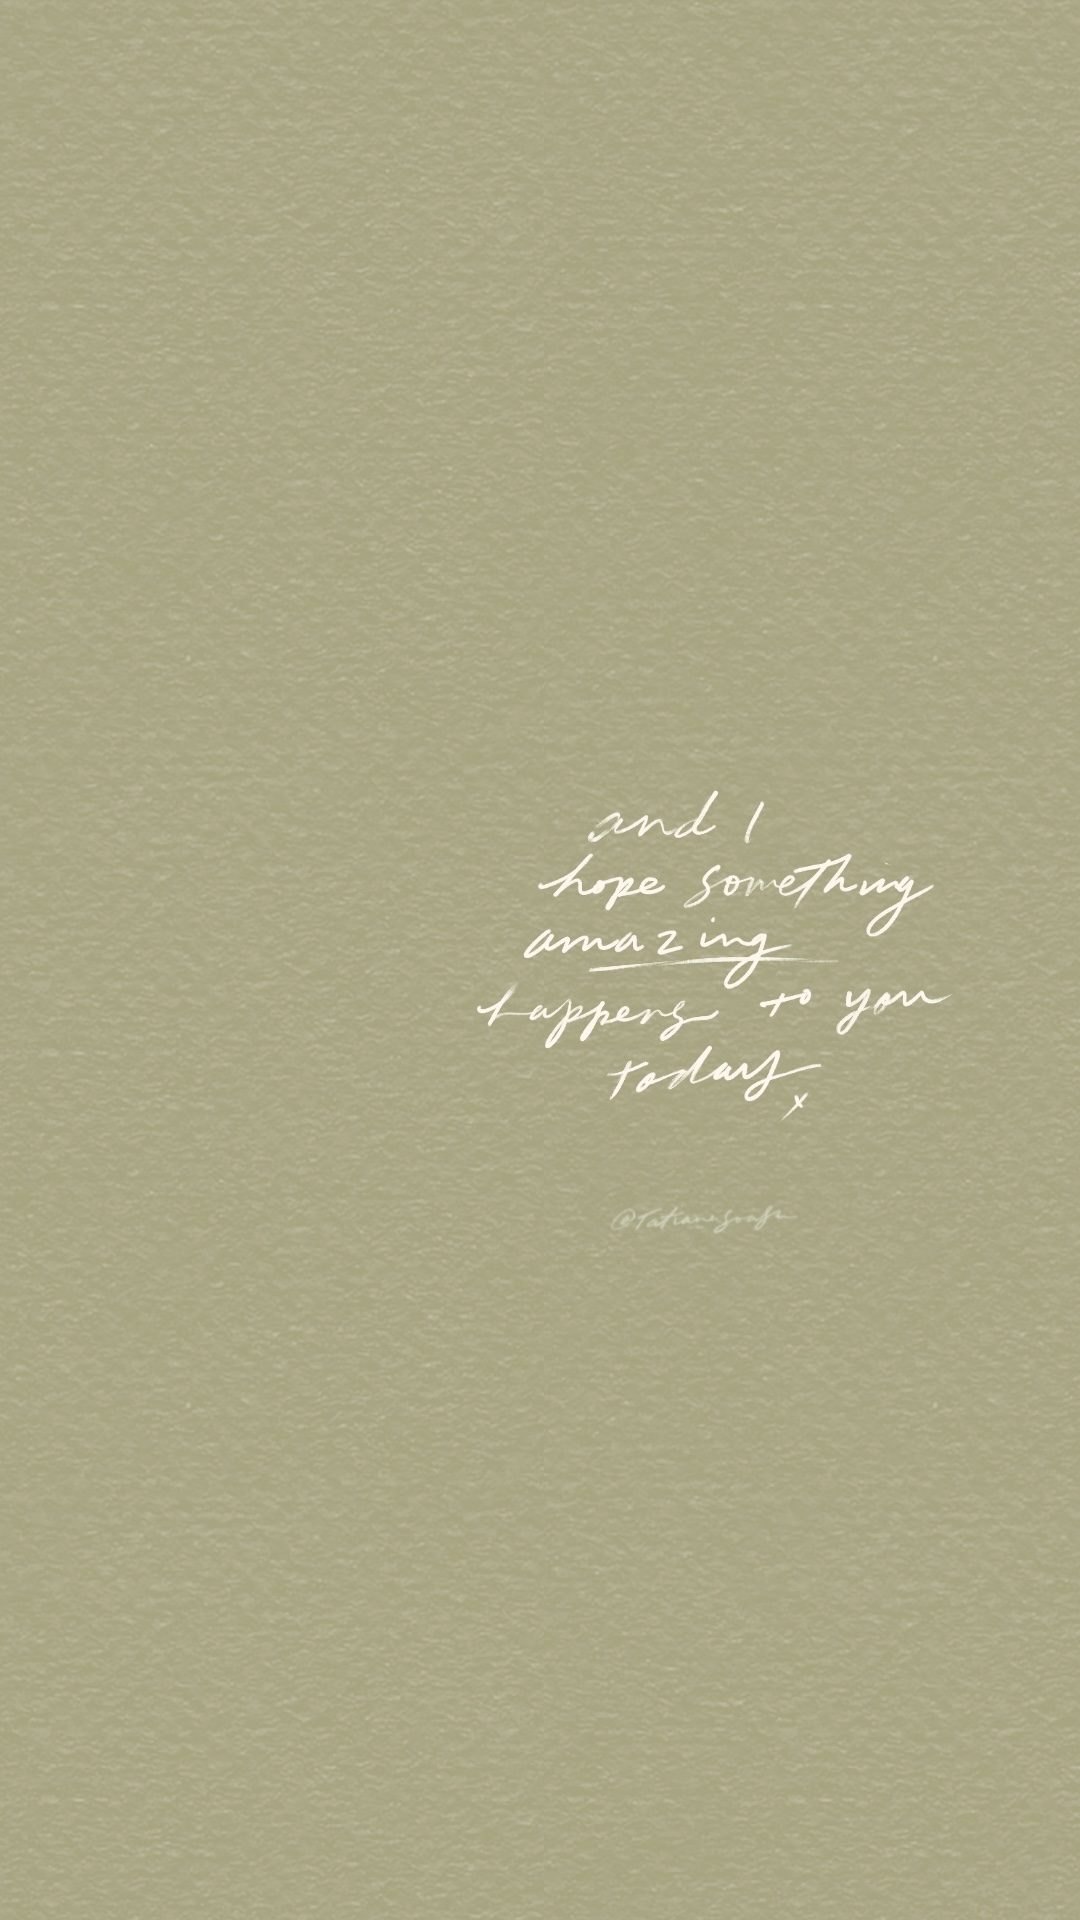 and I
hope something
amazing
happens to you
today
x